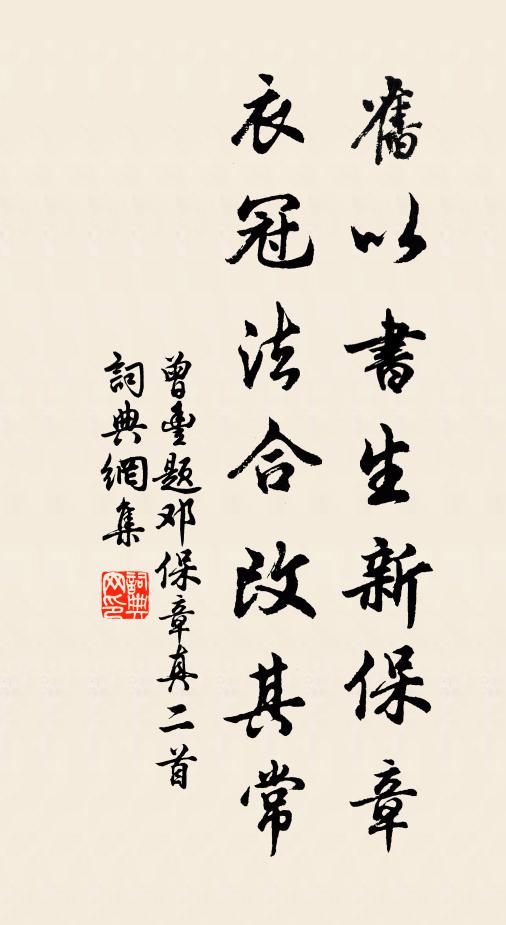 舊以書生新保章
衣冠法合改其常
曾豐題邓保章真二首
詞典網集
詞典网印